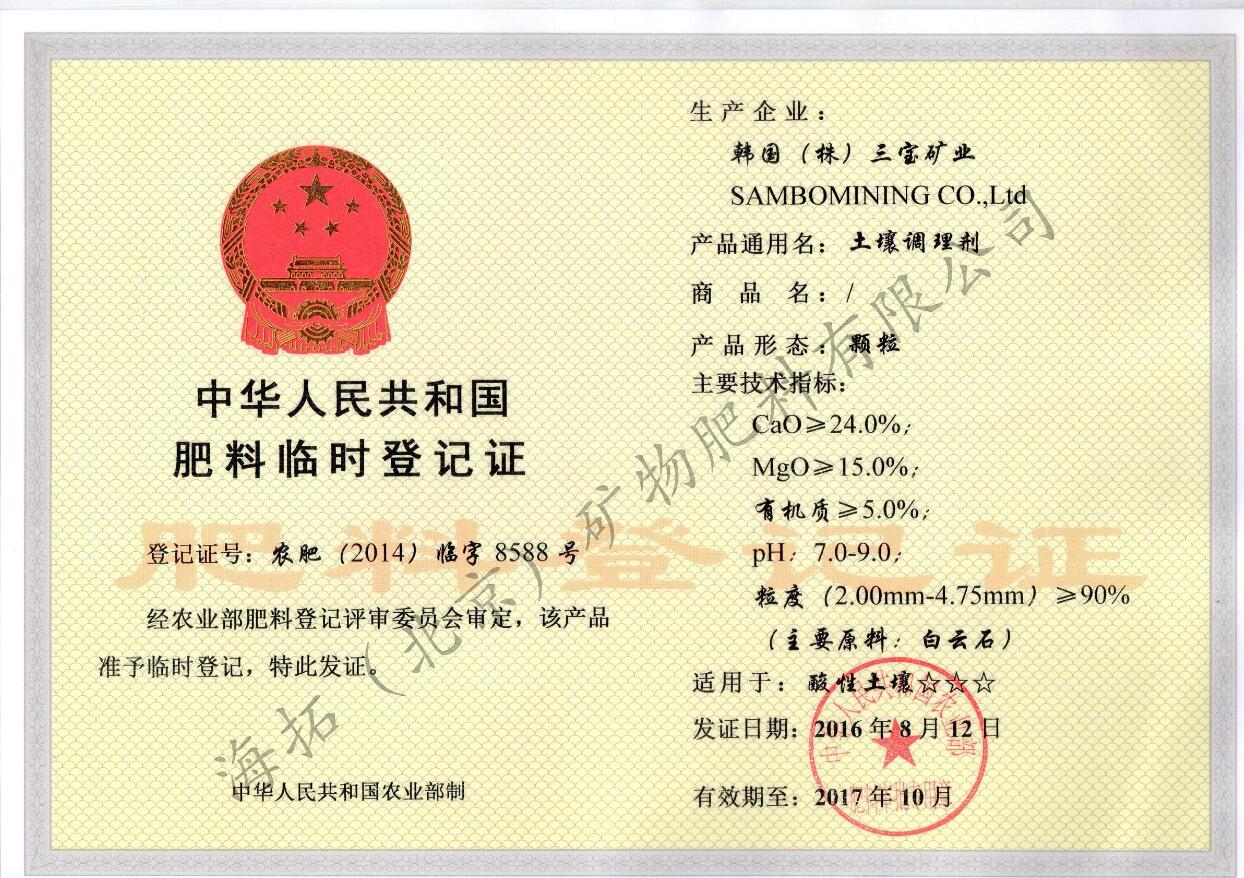 中华人民共和国
肥料临时登记证
肥料登记证
登记证号：农肥（2014）临字 8588 号
经农业部肥料登记评审委员会审定，该产品
准予临时登记，特此发证。
中华人民共和国农业部制
生产企业：
韩国（株）三宝矿业
SAMBOMINING CO.,Ltd
产品通用名：土壤调理剂
商 品 名：/
产品形态：颗粒
主要技术指标：
CaO≥24.0%;
MgO≥15.0%;
有机质≥5.0%;
pH：7.0-9.0;
粒度（2.00mm-4.75mm）≥90%
（主要原料：白云石）
适用于：酸性土壤☆☆☆
发证日期：2016 年 8 月 12 日
有效期至：2017 年 10 月
中华人民共和国农业部
海拓（北京）矿物肥料有限公司